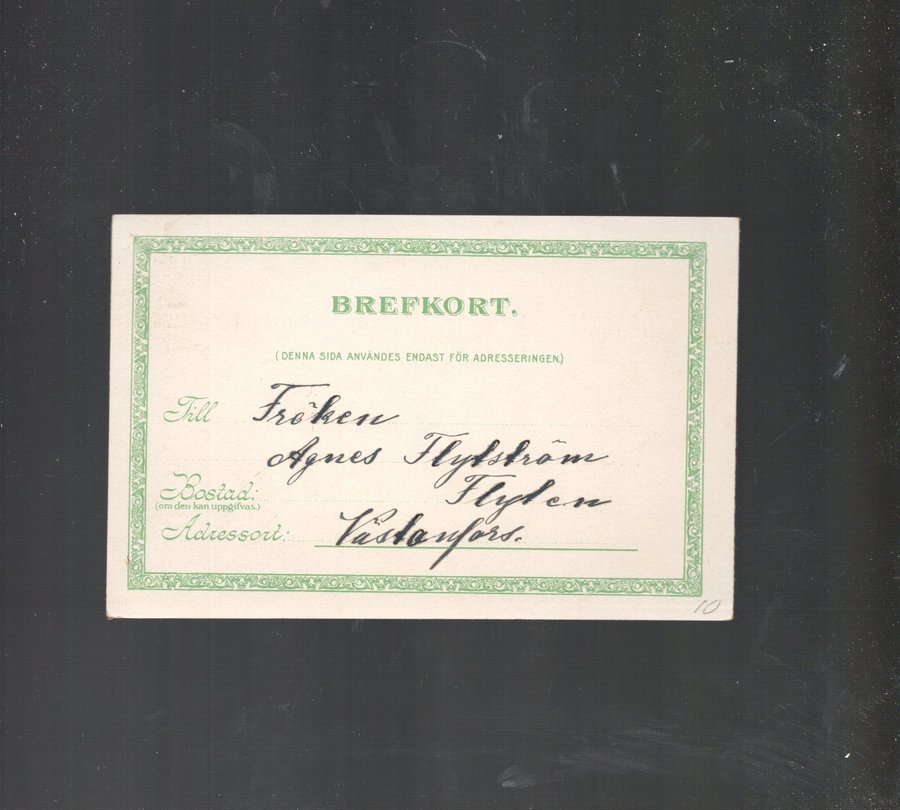 BREFKORT.
(DENNA SIDA ANVÄNDES ENDAST FÖR ADRESSERINGEN.)
Till Fröken
Agnes Flytström
Bostad: Flyten
(om den kan uppgifvas.)
Adressort: Västanfors.
10